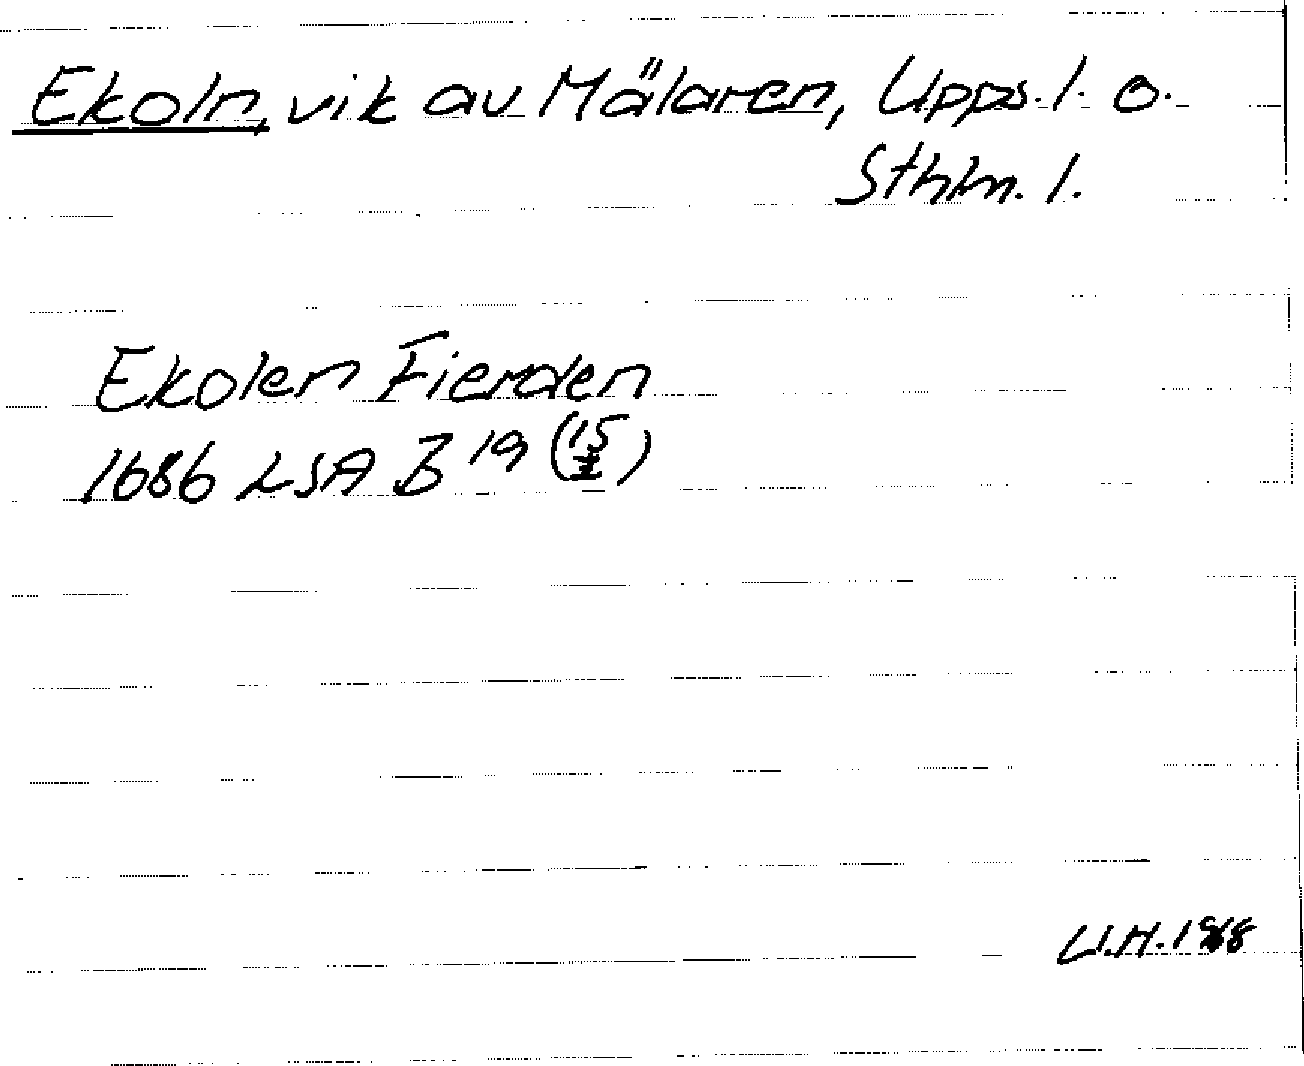 Ekoln, vik av Mälaren, Upps. l. o.
Sthlm. l.
Ekolen Fierden
1686 LSA B 19 (15/I)
U.H. 1968